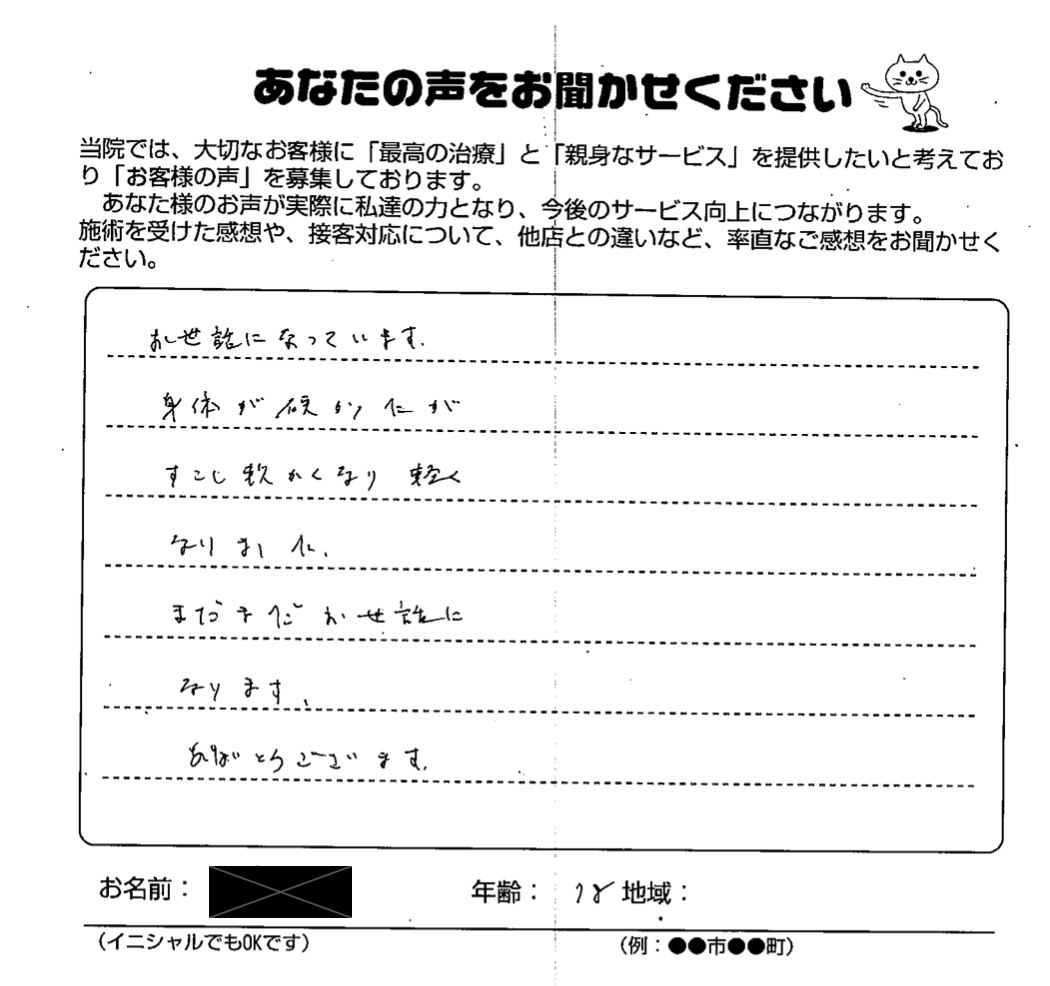 あなたの声をお聞かせください
当院では、大切なお客様に「最高の治療」と「親身なサービス」を提供したいと考えてお
り「お客様の声」を募集しております。
あなた様のお声が実際に私達の力となり、今後のサービス向上につながります。
施術を受けた感想や、接客対応について、他店との違いなど、率直なご感想をお聞かせく
ださい。
お世話になっています.
身体が硬かたが
すこし軟かくなり 軽く
なりました.
まだまだお世話に
なります.
ありがとうございます.
お名前： 年齢： 78 地域：
(イニシャルでもOKです) (例：●●市●●町)